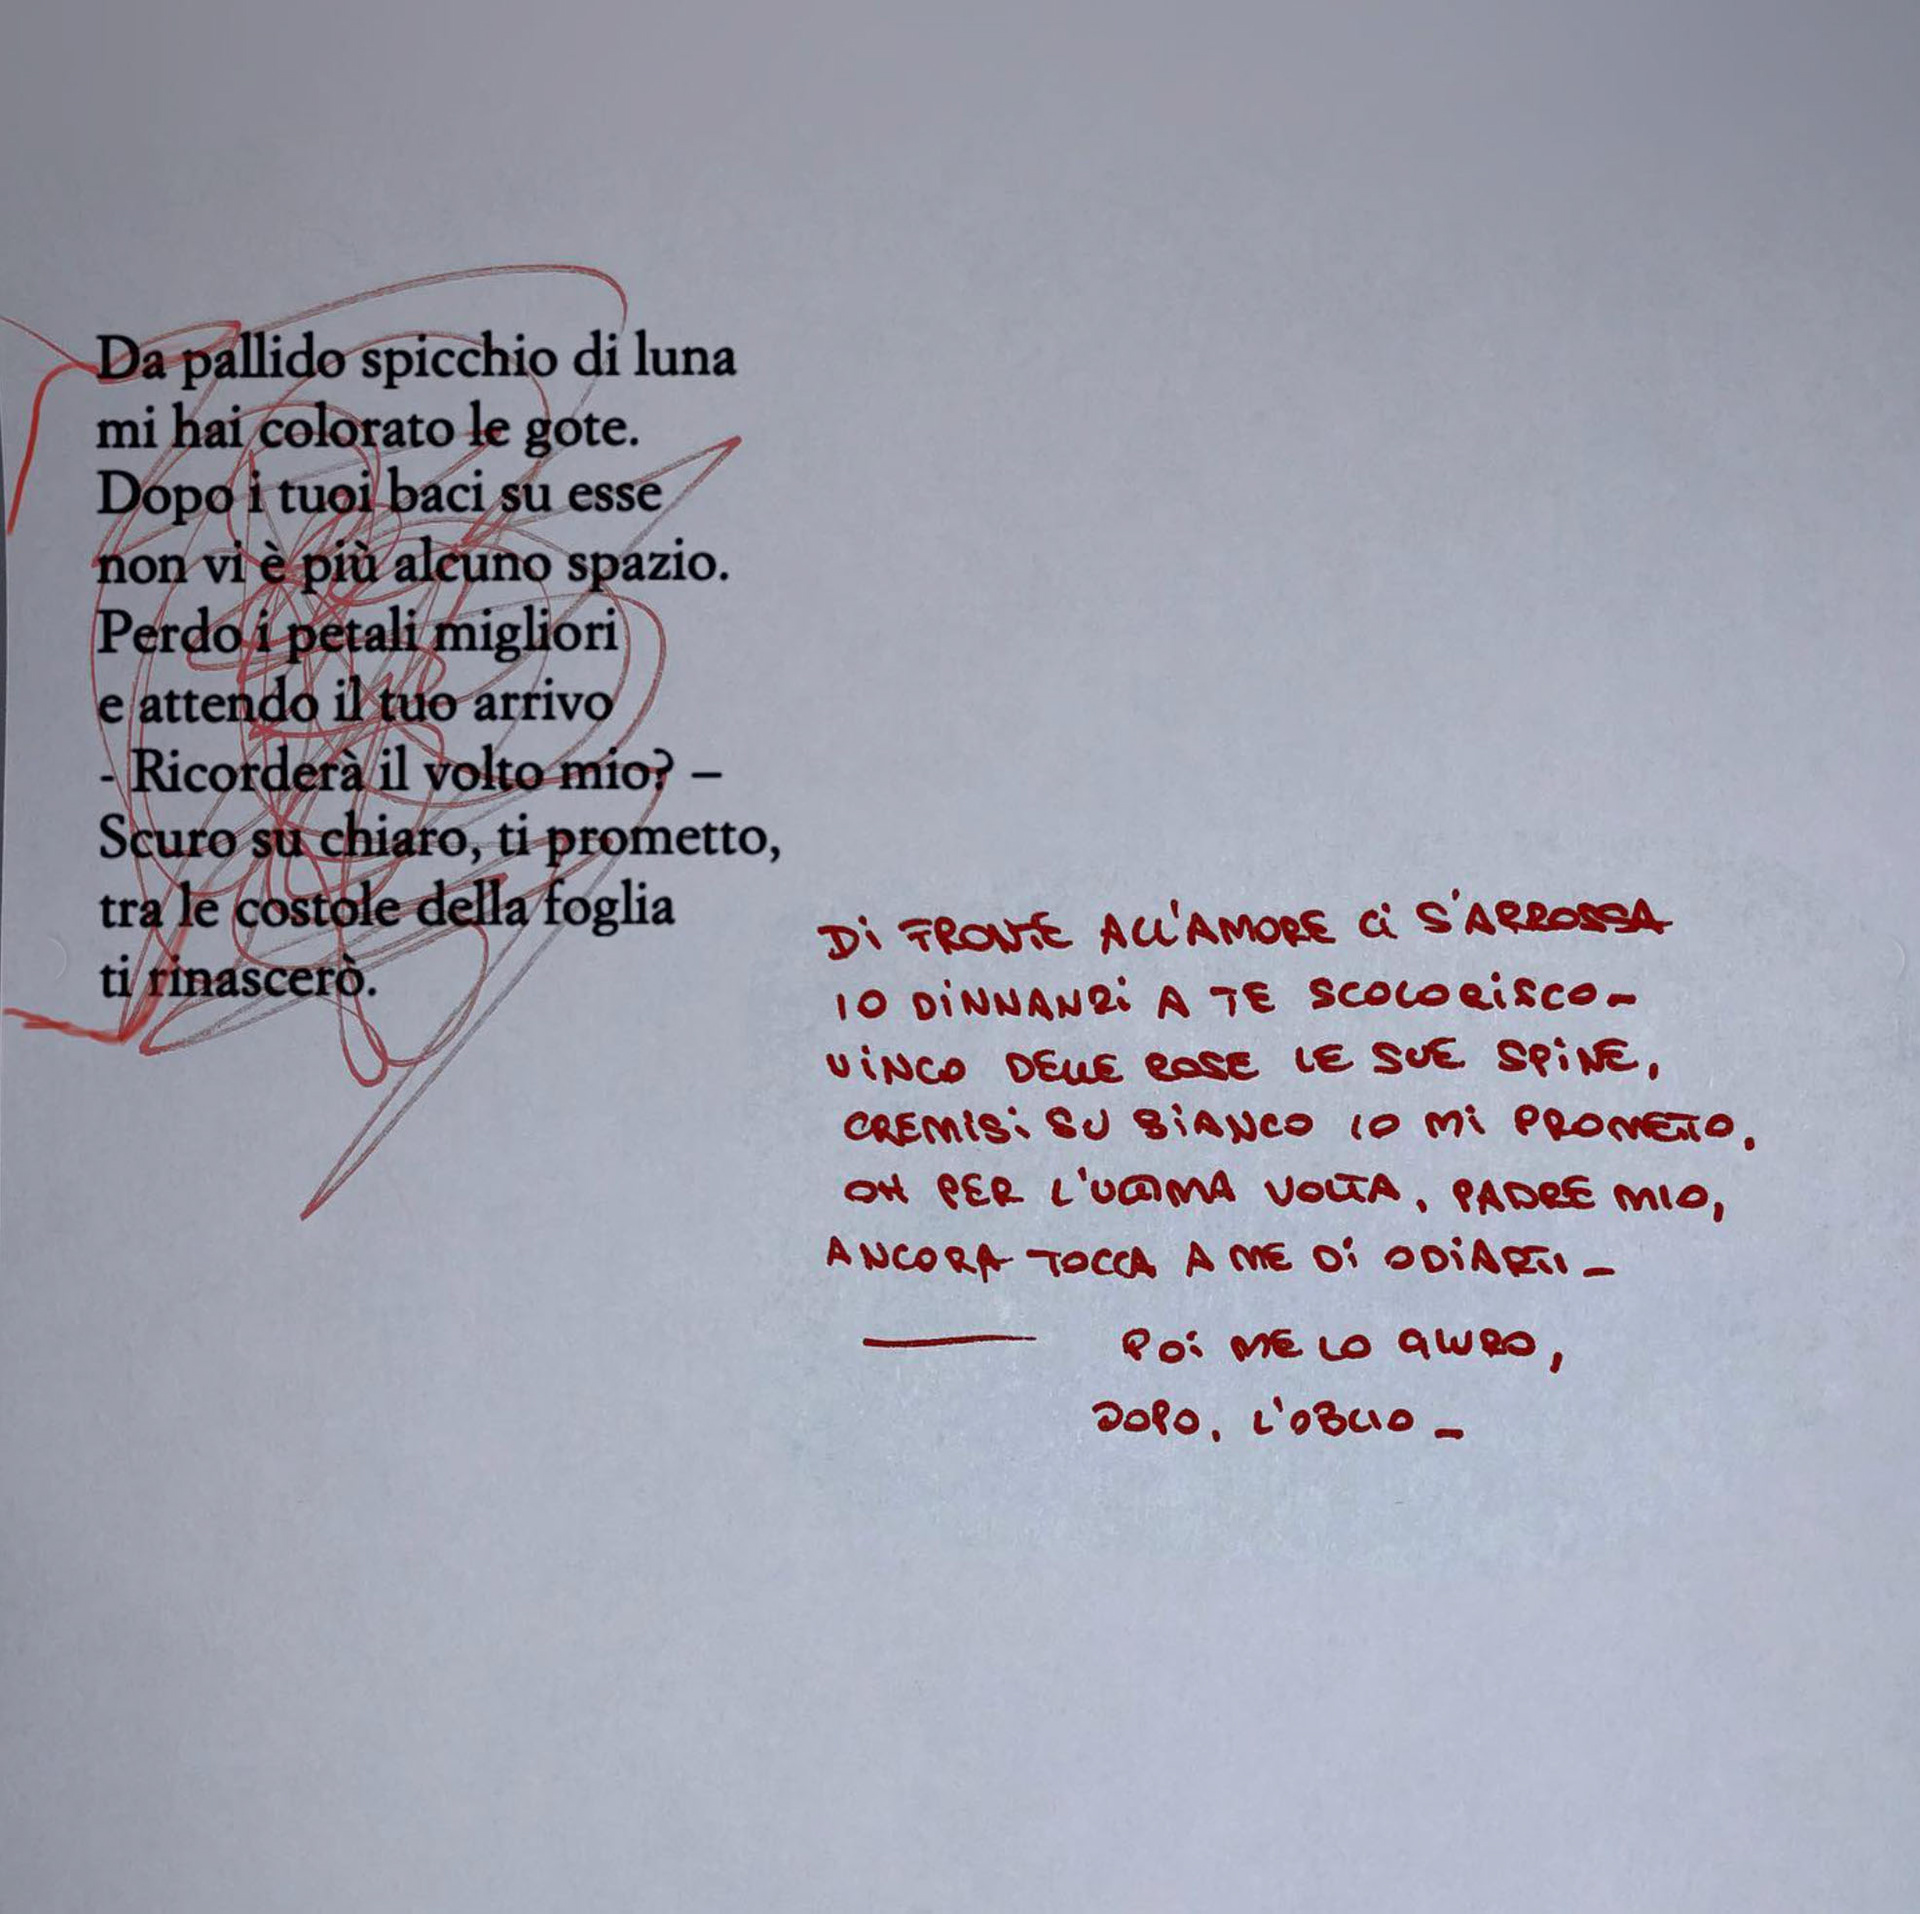 Da pallido spicchio di luna
mi hai colorato le gote.
Dopo i tuoi baci su esse
non vi è più alcuno spazio.
Perdo i petali migliori
e attendo il tuo arrivo
- Ricorderà il volto mio? –
Scuro su chiaro, ti prometto,
tra le costole della foglia
ti rinascerò.
DI FRONTE ALL'AMORE CI S'ARROSSA
IO DINNANZI A TE SCOLORISCO-
VINCO DELLE ROSE LE SUE SPINE,
CREMISI SU BIANCO IO MI PROMETTO.
OH PER L'ULTIMA VOLTA, PADRE MIO,
ANCORA TOCCA A ME DI ODIARTI_
— POI ME LO GIURO,
DOPO, L'OBLIO_